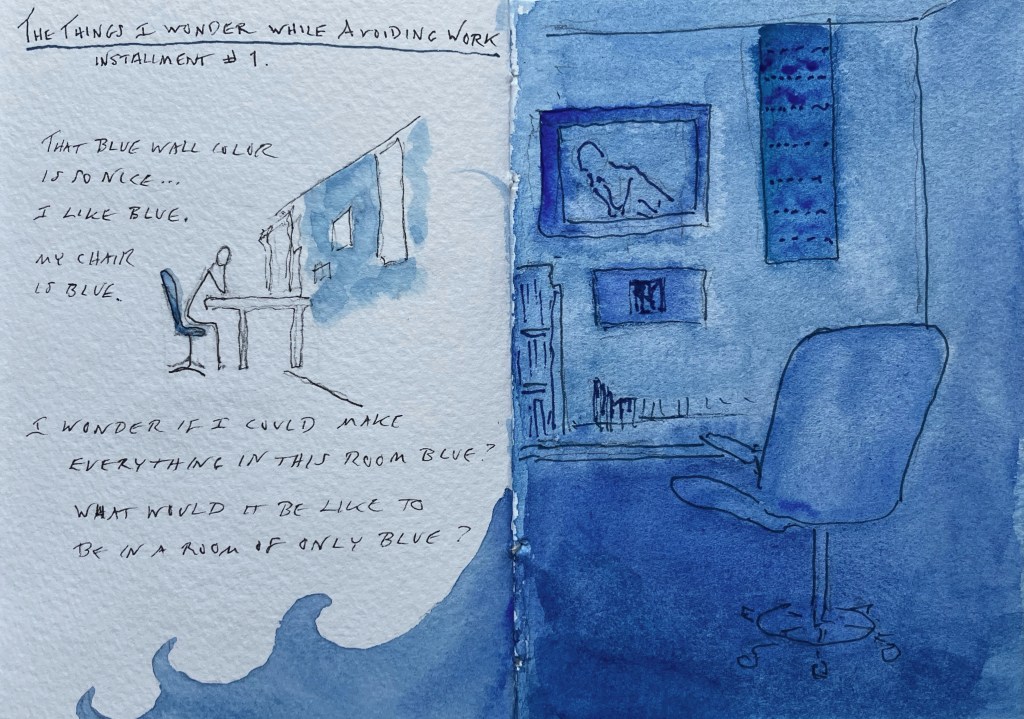 THE THINGS I WONDER WHILE AVOIDING WORK
INSTALLMENT # 1.
THAT BLUE WALL COLOR
IS SO NICE...
I LIKE BLUE.
MY CHAIR
IS BLUE.
I WONDER IF I COULD MAKE
EVERYTHING IN THIS ROOM BLUE?
WHAT WOULD IT BE LIKE TO
BE IN A ROOM OF ONLY BLUE?